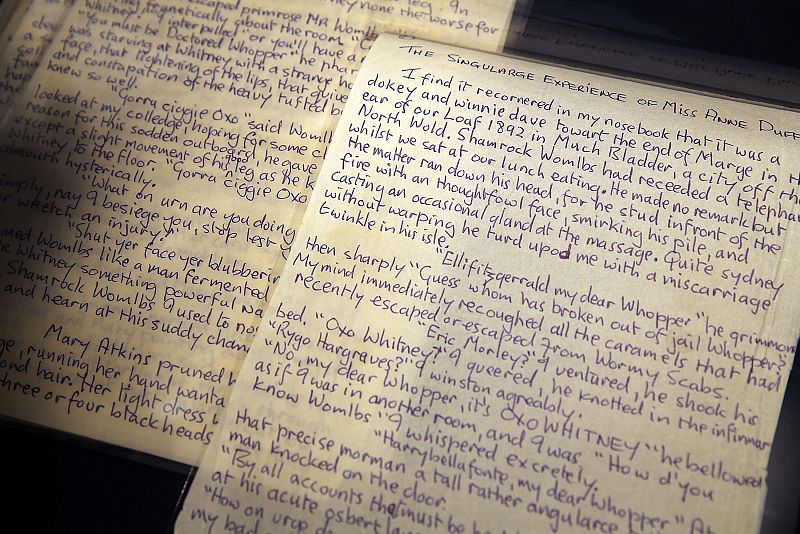 escaped primrose Mr Womlbs
they none the worse for
Whitney, frenetically about the room."
"You must be interpolled" or you'll have a
"Doctored Whopper" he
was starving at Whitney with a strange
face, that tightening of the lips, that quive
and constapation of the heavy tufted
knew so well.
"Gorra ciggie Oxo" said Womlb
looked at my colledge, hoping for some cl
reason for this sodden outboard, he gave
except a slight movement of his leg as he k
Whitney to the floor, "Gorra Ciggie Oxo
almouth hysterically.
"What on urn are you doing
imply; nay I besiege you, stop lest
r wretch, an injury!"
"Shut yer face yer blubberin
med Womlbs like a man fermented
r Whitney something powerful na
Shamrock Womlbs I used to no
and hearn at this suddy chan
Mary Atkins pruned h
ge, running her hand wanta
ond hair. Her tight dress
three or four black heads
The Singularge Experience of Miss Anne Duff
I find it recornered in my nosebook that it was a
dokey and winnie dave towart the end of Marge in the
ear of our Loaf 1892 in Much Bladder, a city off the
North Wold. Shamrock Womlbs had receeded a telephan
whilst we sat at our lunch eating. He made no remark but
the matter ran down his head, for he stud infront of the
fire with an thoughtfowl face, smirking his pile, and
casting an occasional gland at the massage. Quite sydney
without warping he turd upod me with a miscarriage
twinkle in his isle.
"Ellifitzgerrald my dear Whopper" he grimmon
then sharply "Guess whom has broken out of jail Whopper?
My mind immediately recoughed all the caramels that had
recently escaped or escaped from Wormy Scabs.
"Eric Morley?" I ventured, he shook his
bed. "Oxo Whitney?" I queered, he knotted in the infirmar
"Rygo Hargraves?" I winston agreably.
"No, my dear Whopper, it's OXO WHITNEY" he bellowed
as if I was in another room, and I was. "How d'you
know Womlbs" I whispered excretely.
"Harrybellafonte, my dear Whopper" At
that precise morman a tall rather angularce
man knocked on the door.
"By all accounts that must be
at his acute osbert
"How on urop
my bad